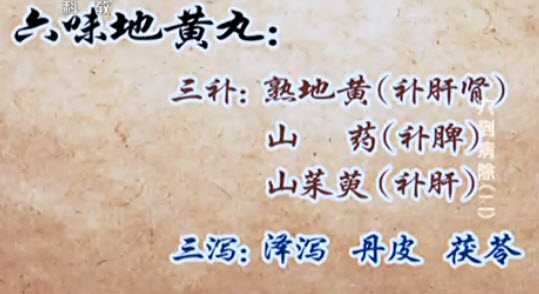 科教
六味地黄丸：
三补：熟地黄（补肝肾）
山 药（补脾）
山茱萸（补肝）
三泻：泽泻 丹皮 茯苓
病除（二）